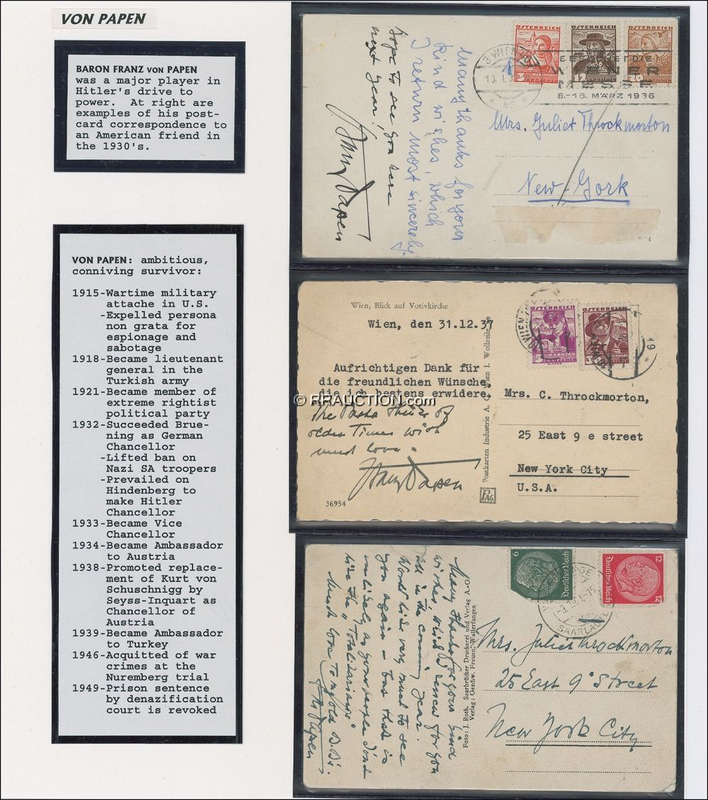 VON PAPEN
BARON FRANZ VON PAPEN
was a major player in
Hitler's drive to
power. At right are
examples of his post-
card correspondence to
an American friend in
the 1930's.
VON PAPEN: ambitious,
conniving survivor:
1915-Wartime military
attache in U.S.
-Expelled persona
non grata for
espionage and
sabotage
1918-Became lieutenant
general in the
Turkish army
1921-Became member of
extreme rightist
political party
1932-Succeeded Brue-
ning as German
Chancellor
-Lifted ban on
Nazi SA troopers
-Prevailed on
Hindenberg to
make Hitler
Chancellor
1933-Became Vice
Chancellor
1934-Became Ambassador
to Austria
1938-Promoted replace-
ment of Kurt von
Schuschnigg by
Seyss-Inquart as
Chancellor of
Austria
1939-Became Ambassador
to Turkey
1946-Acquitted of war
crimes at the
Nuremberg trial
1949-Prison sentence
by denazification
court is revoked
Many thanks for your
kind wishes, which
I return most sincerely.
hope to see you here
next year!
Franz Papen
ÖSTERREICH
ÖSTERREICH
ÖSTERREICH
WIENER
MESSE
8.-15. MÄRZ 1936
Mrs. Juliet Throckmorton
New-York
Wien, Blick auf Votivkirche
Wien, den 31.12.37
Aufrichtigen Dank für
die freundlichen Wünsche,
die ich bestens erwidere.
older times with
much love.
Franz Papen
36954
Postkarten Industrie A. G., Wien I. Wollzeile
ÖSTERREICH
ÖSTERREICH
WIEN
Mrs. C. Throckmorton,
25 East 9 e street
New York City
U.S.A.
© RRAUCTION.COM
Many thanks for your kind
wishes, which I renew for you
all in the coming year.
Would like very much to see
you again - but that is
unlikely as your people don't
like the "Totalitarians"
Much love to you
Papen
Foto: J. Roth, Saarbrücker Druckerei und Verlag A.-G.
Verlag: Geschw. Freund, Wallerfangen
6
Deutsches Reich
12
Deutsches Reich
Mrs. Juliet Throckmorton
25 East 9th Street
New York City